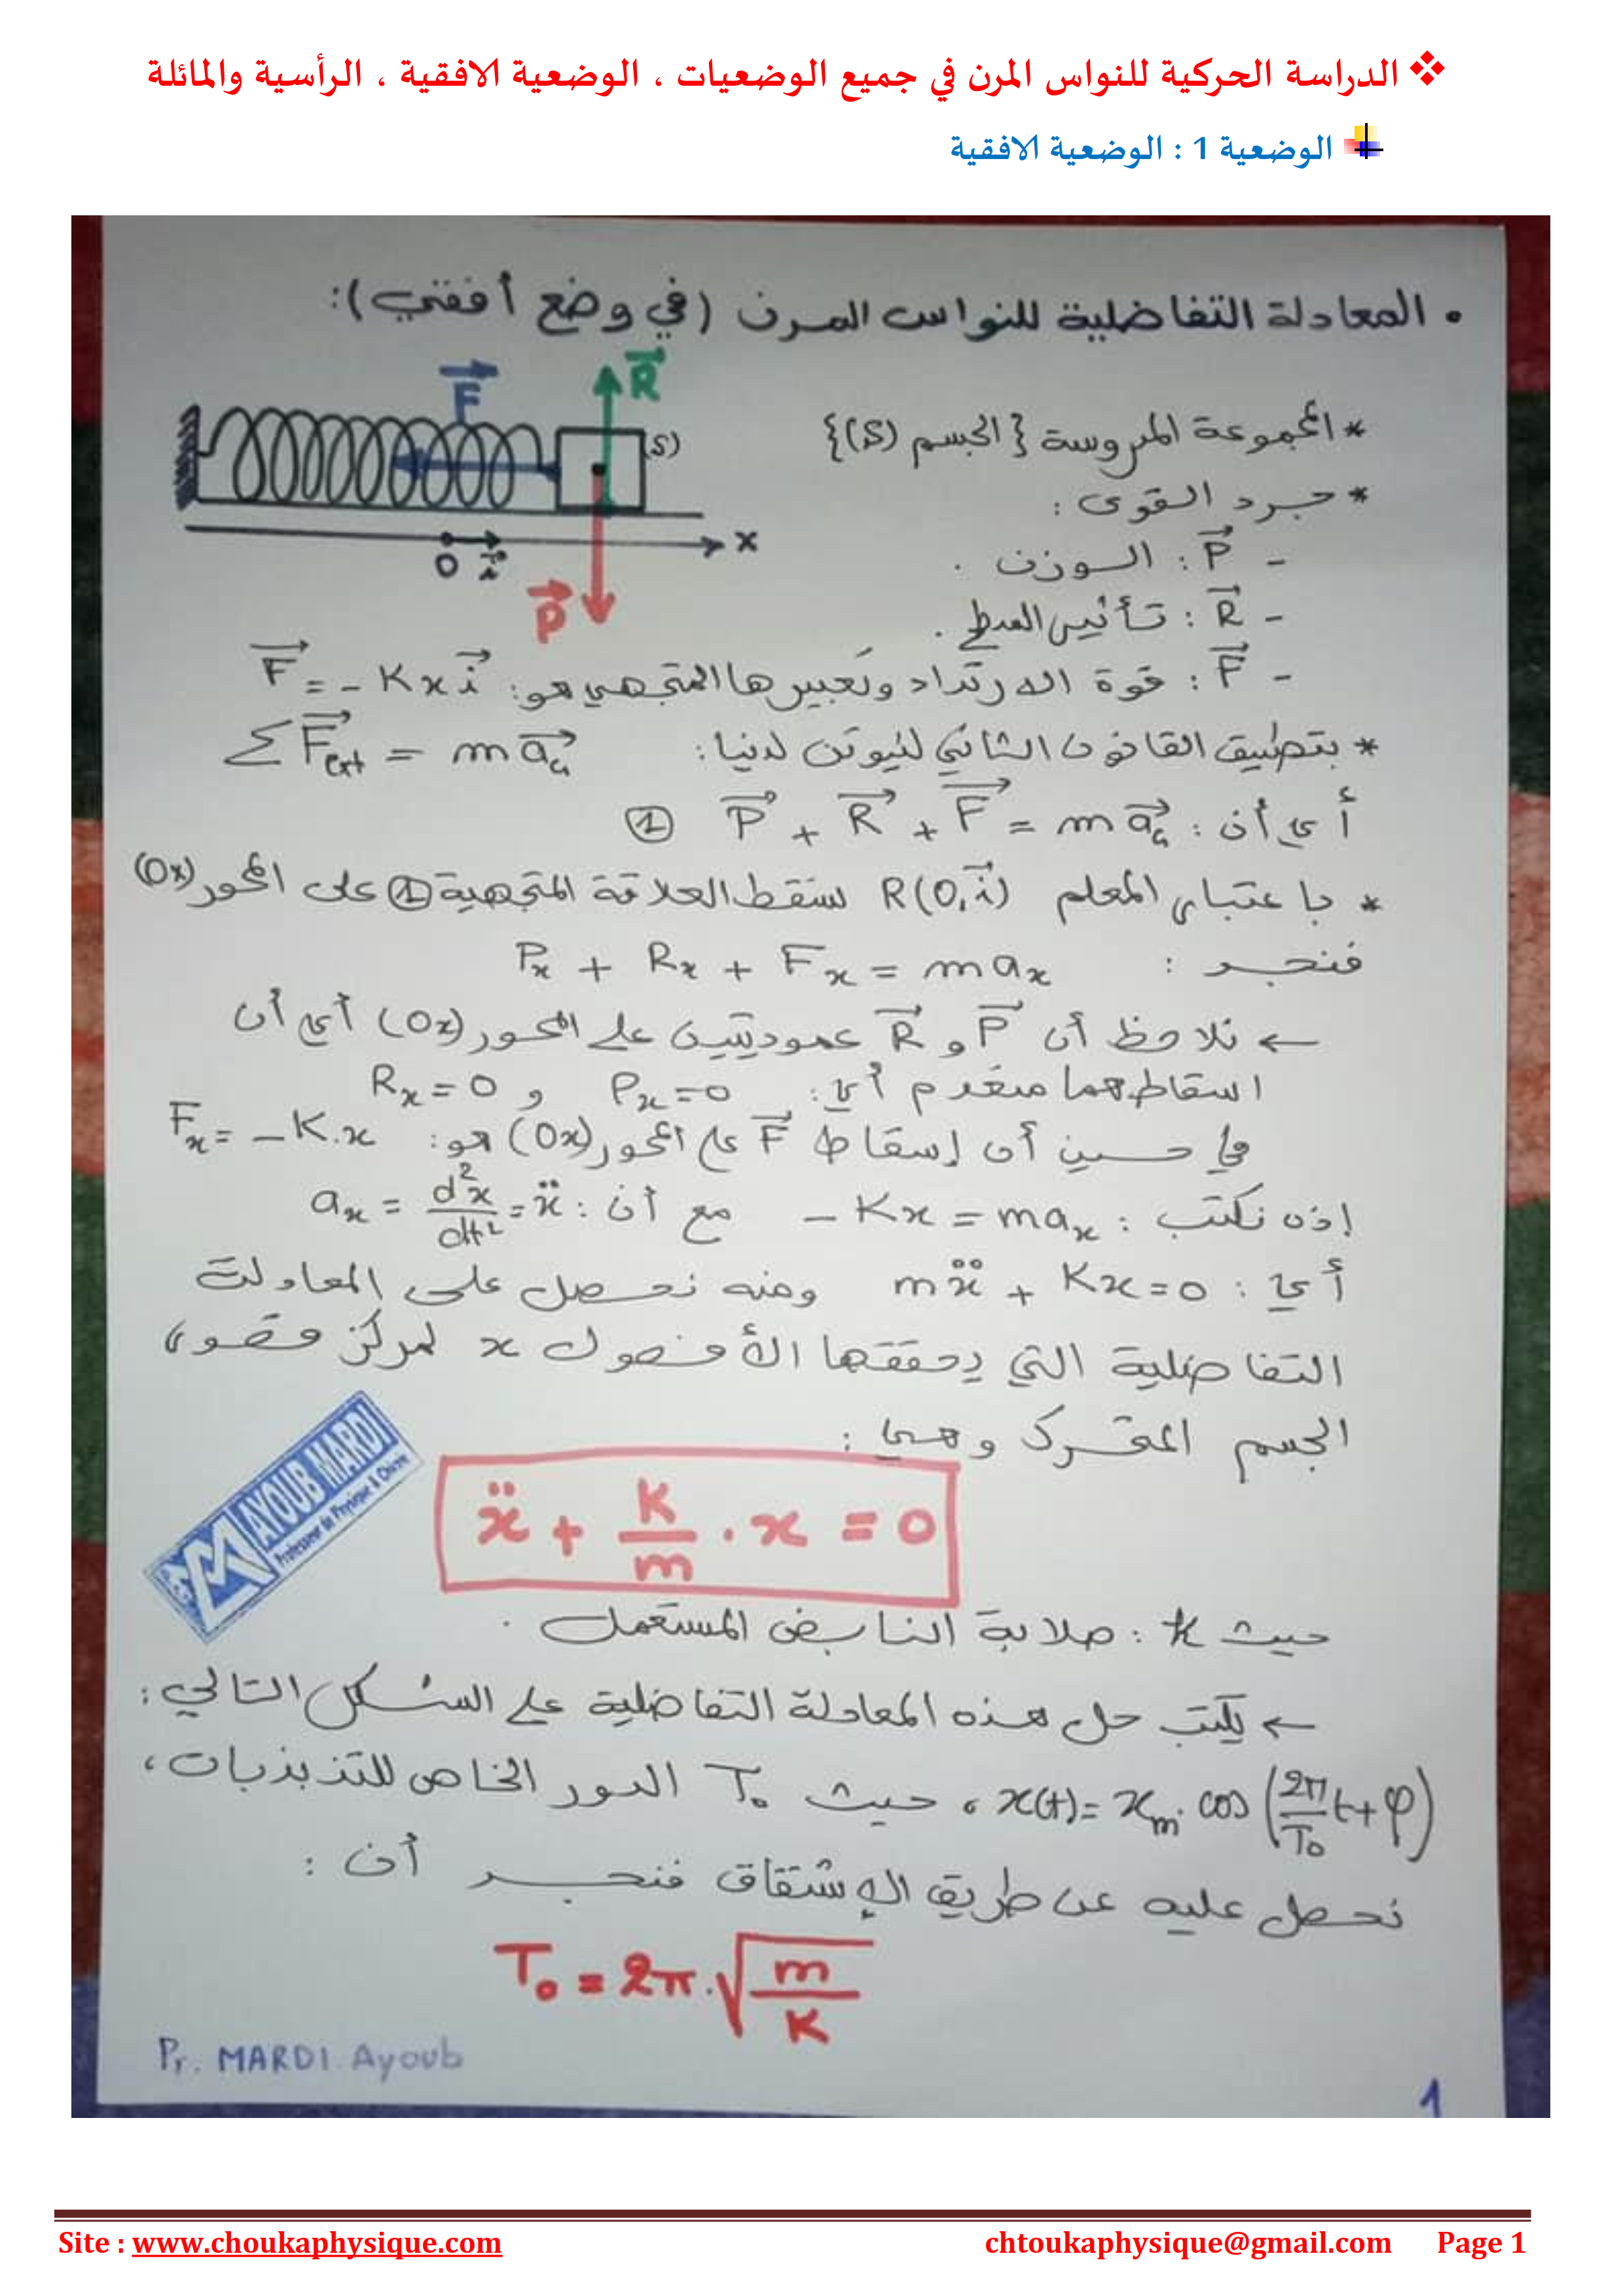 ❖ الدراسة الحركية للنواس المرن في جميع الوضعيات ، الوضعية الافقية ، الرأسية والمائلة
الوضعية 1 : الوضعية الافقية
• المعادلة التفاضلية للنواس المرن (في وضع أفقي):
F⃗
R⃗
(S)
x
O i⃗
P⃗
* المجموعة المدروسة {الجسم (S)}
* جرد القوى :
- P⃗ : الوزن .
- R⃗ : تأثير السطح .
- F⃗ : قوة الارتداد وتعبيرها المتجهي هو: F⃗ = - K x i⃗
* بتطبيق القانون الثاني لنيوتن لدينا: ΣF⃗ext = m a⃗G
أي أن : P⃗ + R⃗ + F⃗ = m a⃗G ①
* باعتبار المعلم R(O,i⃗) نسقط العلاقة المتجهية ① على المحور (Ox)
فنجد : Px + Rx + Fx = m ax
← نلاحظ أن P⃗ و R⃗ عموديتين على المحور (Ox) أي أن
اسقاطهما منعدم أي: Px = 0 و Rx = 0
في حين أن إسقاط F⃗ على المحور (Ox) هو: Fx = - K.x
إذن نكتب : - Kx = m ax مع أن : ax = d²x/dt² = ẍ
أي : mẍ + Kx = 0 ومنه نحصل على المعادلة
التفاضلية التي يحققها الأفصول x لمركز قصور
الجسم المتحرك وهي :
ẍ + K/m . x = 0
AYOUB MARDI
Professeur de Physique & Chimie
حيث K : صلابة النابض المستعمل .
← يكتب حل هذه المعادلة التفاضلية على الشكل التالي :
x(t) = xm. cos (2π/T₀ t + φ) ، حيث T₀ الدور الخاص للتذبذبات ،
نحصل عليه عن طريق الإشتقاق فنجد أن :
T₀ = 2π.√(m/K)
Pr. MARDI Ayoub
1
Site : www.choukaphysique.com chtoukaphysique@gmail.com Page 1